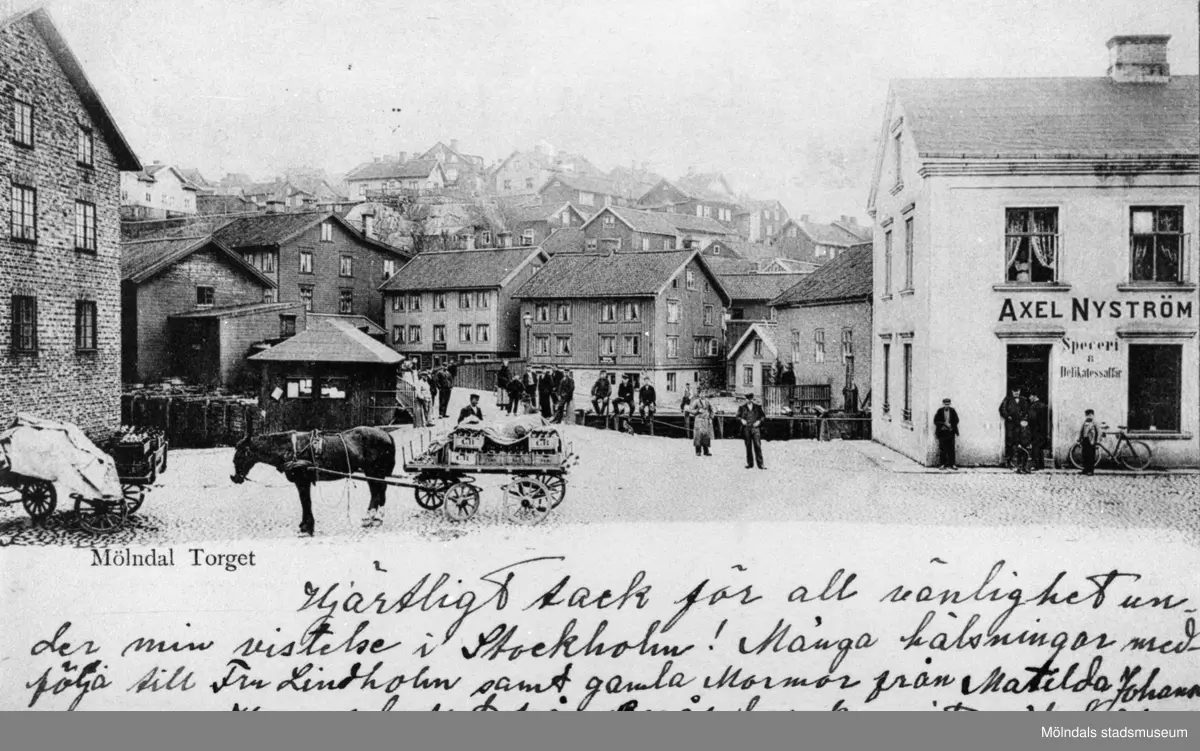 AXEL NYSTRÖM
Speceri
&
Delikatessaffär
Mölndal Torget
Hjärtligt tack för all vänlighet un-
der min vistelse i Stockholm! Många hälsningar med-
följa till Fru Lindholm samt gamla Mormor från Matilda Johans
Mölndals stadsmuseum